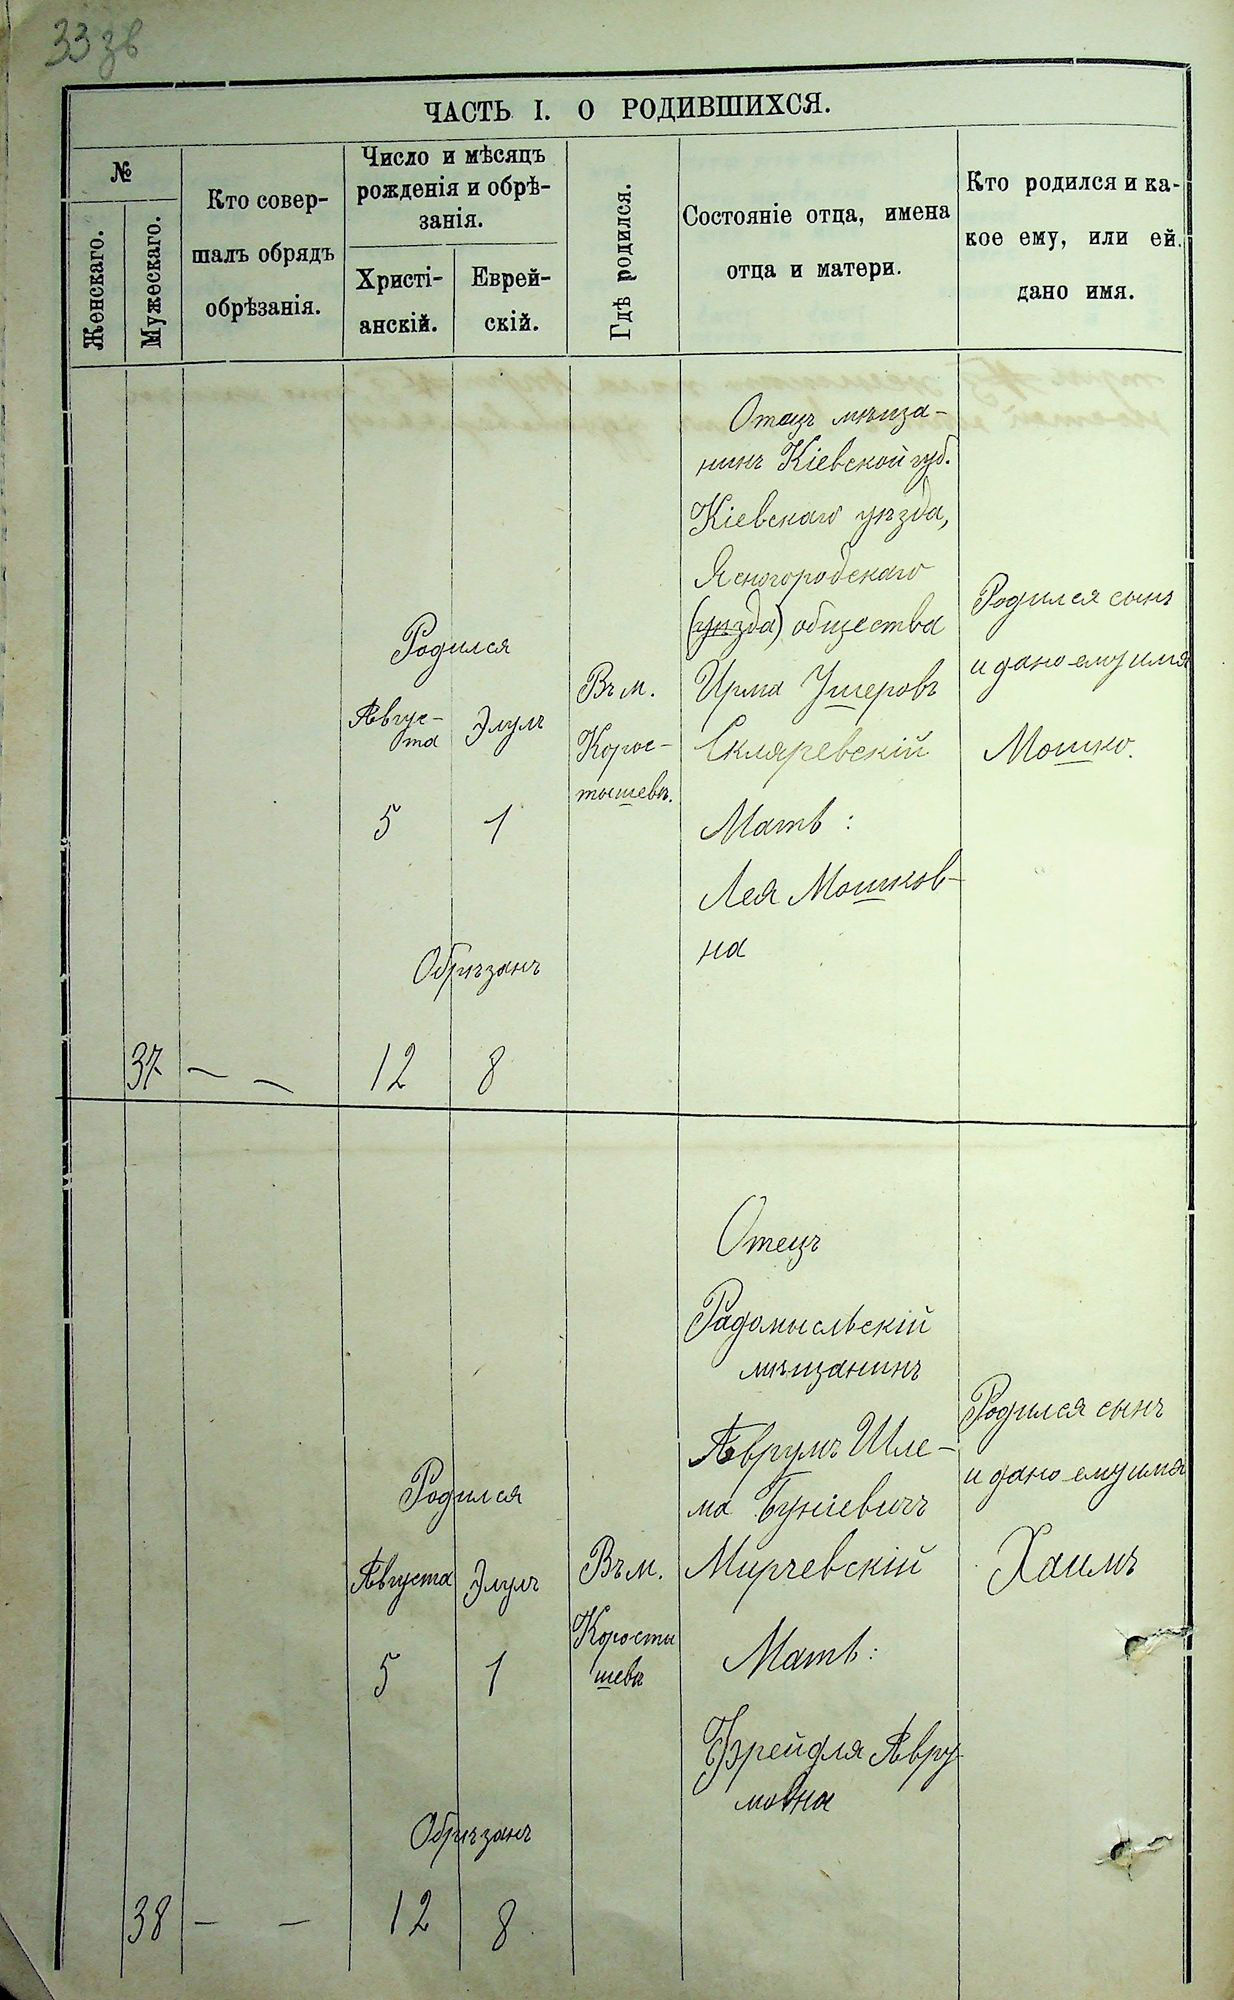 33 зв
ЧАСТЬ I. О РОДИВШИХСЯ.
№
Женскаго.
Мужескаго.
Кто совер-
шалъ обрядъ
обрѣзанія.
Число и мѣсяцъ
рожденія и обрѣ-
занія.
Христі-
анскій.
Еврей-
скій.
Гдѣ родился.
Состояніе отца, имена
отца и матери.
Кто родился и ка-
кое ему, или ей.
дано имя.
37
— —
Родился
Авгус-
та
Элулъ
5 1
Обрѣзанъ
12 8
Въ м.
Корос-
тышевѣ.
Отецъ мѣща-
нинъ Кіевской губ.
Кіевскаго уѣзда,
Ясногородскаго
(уѣзда) общества
Ирма Ушеровъ
Скляревскій
Мать :
Лея Мошков-
на
Родился сынъ
и дано ему имя
Мошко.
38
— —
Родился
Августа Элулъ
5 1
Обрѣзанъ
12 8
Въ м.
Коросты
шевѣ
Отецъ
Радомысльскій
мѣщанинъ
Аврумъ Шле-
ма Буніевичъ
Мирчевскій
Мать :
Фрейдля Авру-
мовна
Родился сынъ
и дано ему имя
Хаимъ